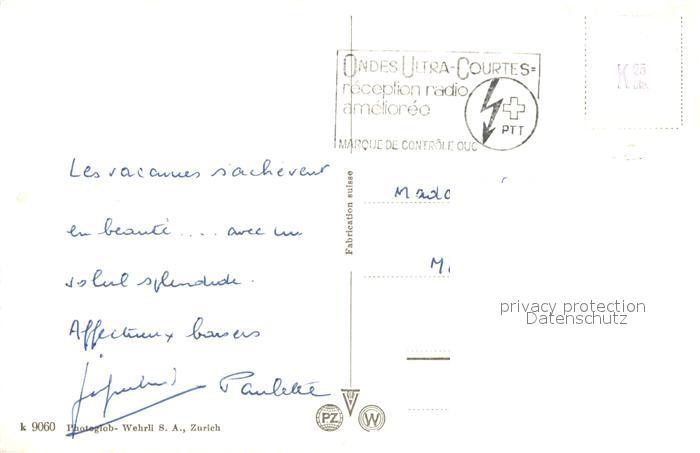 ONDES ULTRA-COURTES=
réception radio
améliorée
PTT
MARQUE DE CONTRÔLE OUC
K 25
Les vacances s'achèvent
en beauté .... avec un
soleil splendide.
Affectueux baisers
Paulette
Fabrication suisse
Mada
M
privacy protection
Datenschutz
k 9060 Photoglob-Wehrli S. A., Zurich
PZ W